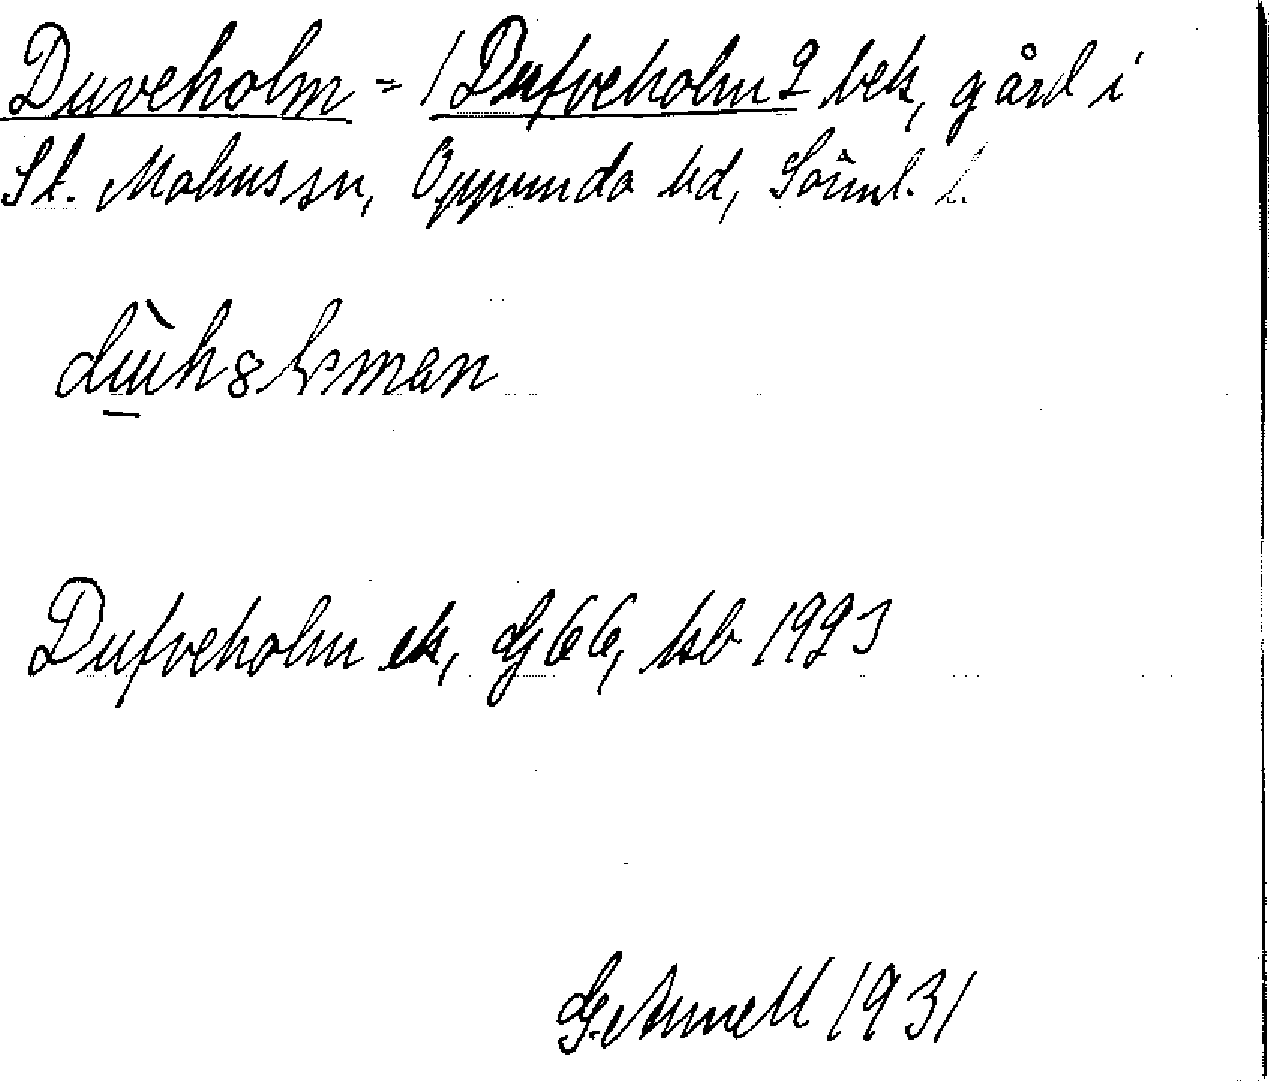 Duveholm = / Dufveholm 2 bek, gård i
St. Malms sn, Oppunda hd, Söml. l.
Dufveholm ek, G66, kb 1993
G. Annell 1931